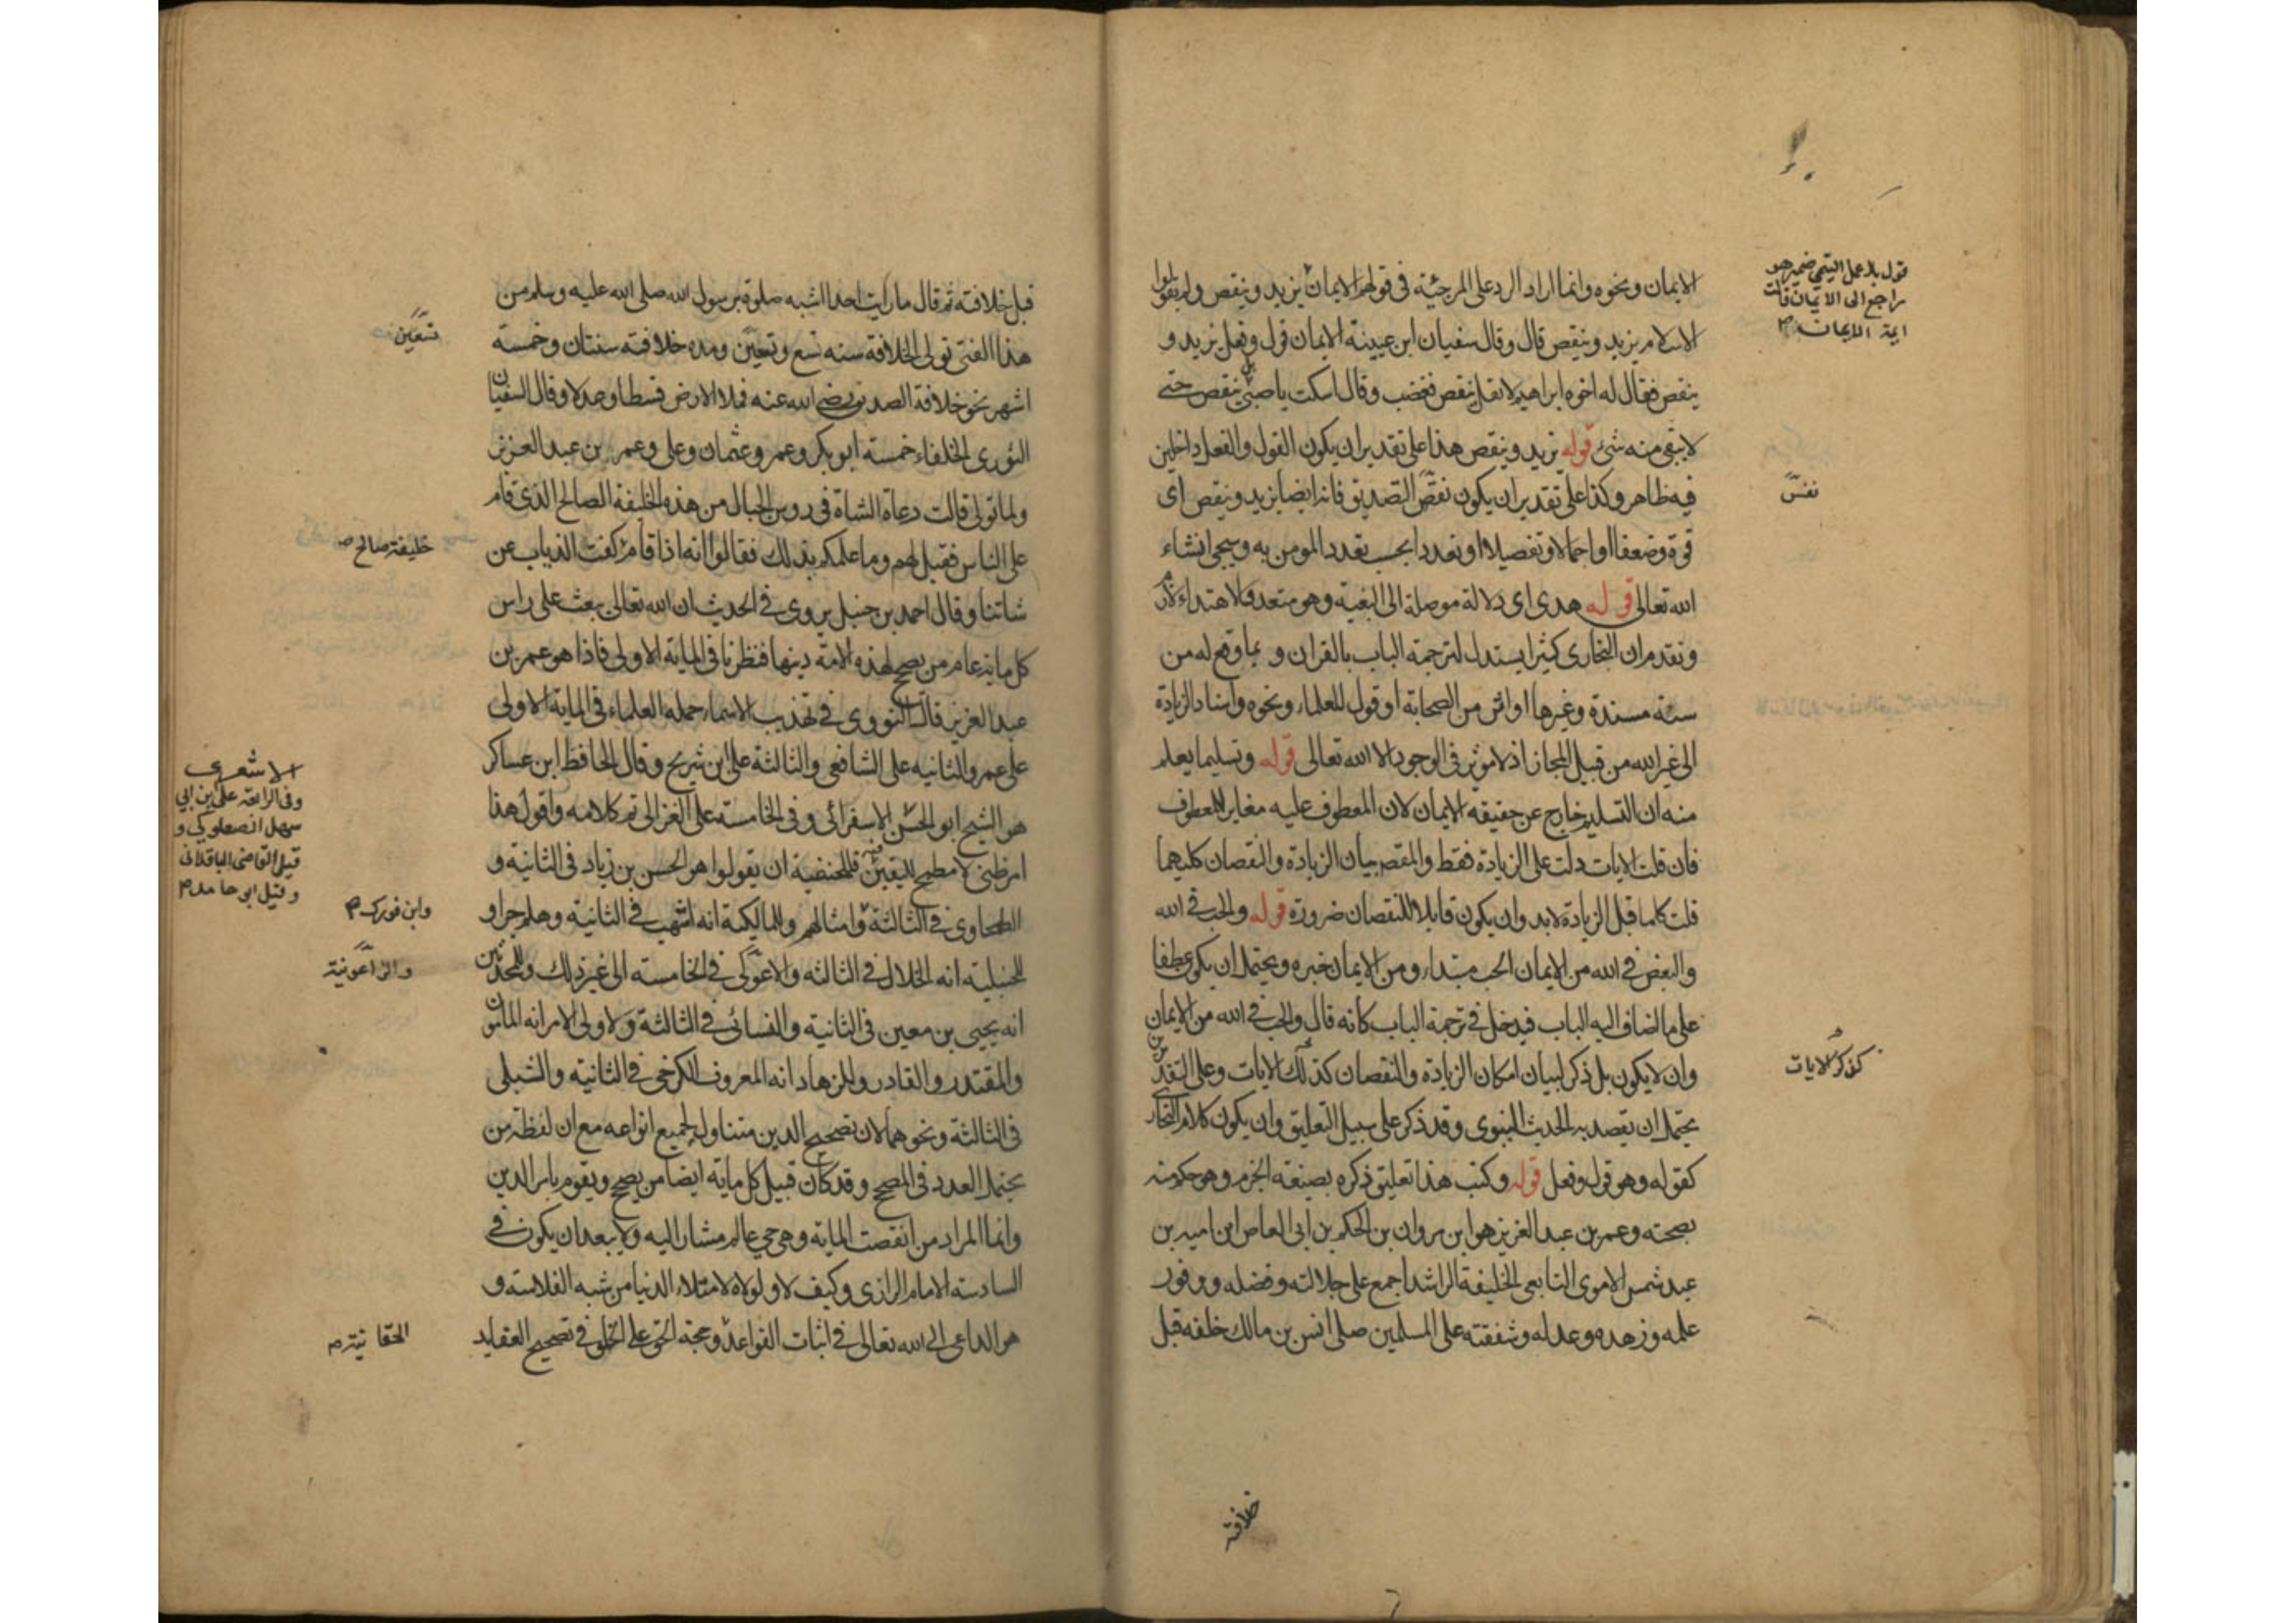 الايمان ونحوه وانما اراد الرد على المرجئة في قولهم الايمان يزيد وينقص ولم يقولوا
الاسلام يزيد وينقص قال وقال سفيان ابن عيينة الايمان قول وفعل يزيد و
ينقص فقال له اخوه ابراهيم لا تقل ينقص فغضب وقال اسكت يا صبي بل ينقص حتى
لا يبقى منه شئ قوله يزيد وينقص هذا على تقدير ان يكون القول والفعل داخلين
فيه ظاهر وكذا على تقدير ان يكون نفس التصديق فانه ايضا يزيد وينقص اى
قوة وضعفا او اجمالا وتفصيلا او تعددا بحسب تعدد المومن به وسيجى انشاء
الله تعالى قوله هدى اى دلالة موصلة الى البغية وهو متعد والاهتداء لازم
وتقدم ان البخارى كثيرا يستدل لترجمة الباب بالقران و بما وقع له من
سنة مسندة وغيرها او اثر من الصحابة او قول للعلماء ونحوه واسناد الزيادة
الى غير الله من قبيل المجاز اذ لا موثر فى الوجود الا الله تعالى قوله وتسليما يعلم
منه ان التسليم خارج عن حقيقه الايمان لان المعطوف عليه مغاير للمعطوف
فان قلت الايات دلت على الزيادة فقط والمقصد بيان الزيادة والنقصان كليهما
قلت كلما قبل الزيادة لا بد وان يكون قابلا للنقصان ضرورة قوله والحب فى الله
والبغض فى الله من الايمان الحب مبتداء ومن الايمان خبره ويحتمل ان يكون عطفا
على ما اضاف اليه الباب فيدخل فى ترجمة الباب كانه قال والحب فى الله من الايمان
وان لا يكون بل ذكر لبيان امكان الزيادة والنقصان كذلك الايات وعلى التقديرين
يحتمل ان يقصد به الحديث النبوى وقد ذكر على سبيل التعليق وان يكون كلام البخارى
كقوله وهو قول وفعل قوله وكتب هذا تعليق ذكره بصيغة الجزم وهو حكم منه
بصحته وعمر بن عبد العزيز هو ابن مروان بن الحكم بن ابى العاص ابن اميه بن
عبد شمس الاموى التابعى الخليفة الراشد اجمع على جلالته وفضله ووفور
علمه وزهده وعدله وشفقته على المسلمين صلى انس بن مالك خلفه قبل
خلافته
قول بلا عمل التيمى ضمير هو
راجع الى الايمان قالت
ايمة الايمان
نفس
كذكر الايات
قبل خلافته ثم قال ما رايت احدا اشبه صلوة برسول الله صلى الله عليه وسلم من
هذا الفتى تولى الخلافة سنه تسع وتسعين ومده خلافته سنتان وخمسة
اشهر نحو خلافة الصديق رضي الله عنه فملا الارض قسطا وعدلا وقال السفيان
الثورى الخلفاء خمسة ابو بكر وعمر وعثمان وعلى وعمر بن عبد العزيز
ولما تولى قالت رعاة الشاة فى روس الجبال من هذه الخليفة الصالح الذى قام
على الناس فقيل لهم وما علمكم بذلك فقالوا انه اذا قام كفت الذياب عن
شاتنا وقال احمد بن حنبل يروى فى الحديث ان الله تعالى يبعث على راس
كل ماية عام من يصح لهذه الامة دينها فنظرنا فى الماية الاولى فاذا هو عمر بن
عبد العزيز قال النووى فى تهذيب الاسماء حمله العلماء فى الماية الاولى
على عمر والثانيه على الشافعى والثالثة على ابن شريح وقال الحافظ ابن عساكر
هو الشيخ ابو الحسن الاسفرائى وفى الخامسة على الغزالى تم كلامه واقول هذا
امر ظنى لا مطمح لليقين فيه فللحنفية ان يقولوا هو الحسن بن زياد فى الثانية و
الطحاوى فى الثالثة وامثالهم وللمالكية انه اشهب فى الثانية وهلم جرا و
للحنبلية انه الخلال فى الثالثه والاعوكى فى الخامسته الى غير ذلك وللمحدثين
انه يحيى بن معين فى الثانية والنسائى فى الثالثة ولاولى الامر انه المامون
والمقتدر والقادر وللزهاد انه المعروف الكرخى فى الثانيه والشبلى
فى الثالثة ونحوهما لان تصحيح الدين متناول لجميع انواعه مع ان لفظة من
يحتمل العدد فى المصحح وقد كان قبيل كل ماية ايضا من يصح ويقوم بامر الدين
وانما المراد من انقضت الماية وهو حى عالم مشار اليه ولا يبعد ان يكون فى
السادسة الامام الرازى وكيف لا ولولاه لامتلاء الدنيا من شبه الفلاسة و
هو الداعى الى الله تعالى فى اثبات القواعد وحجة الحق على الخلق فى تصحيح العقايد
تسعين
خليفة صالح
الاشعرى
وفى الرابعة على ابن ابى
سهل الصعلوكى و
قيل القاضى الباقلانى
وقيل ابو حامد
وابن فورك
والزاغونية
الحقانية